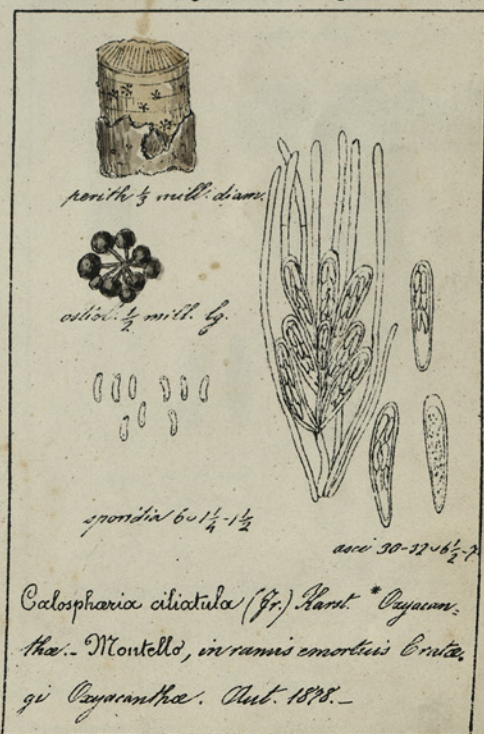 perith ⅓ mill. diam.
ostiol. ½ mill. lg.
sporidia 6 ᴗ 1¼-1½
asci 30-32 ᴗ 6½-7
Calosphæria ciliatula (Fr.) Karst. * Oxyacan=
thæ.- Montello, in ramis emortuis Cratæ-
gi Oxyacanthæ. Aut. 1878.-